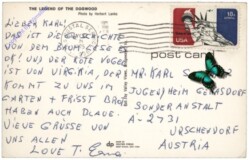 THE LEGEND OF THE DOGWOOD
Photo by
LIEBER KARL!
DAS IST DIE GESCHICHTE
VON DEM BAUM (SIEHE
OBEN) UND DER ROTE VOGEL
IST VON VIRGINIA, DER
KOMMT ZU UNS IM
GARTEN + FRISST BROT
HABEN AUCH BLAUE.
VIELE GRÜSSE VON
UNS ALLEN
LOVE T.
USA
post card
MR. KARL
JUGENDHEIM GERASDORF
SONDERANSTALT
A-2731
URSCHENDORF
AUSTRIA